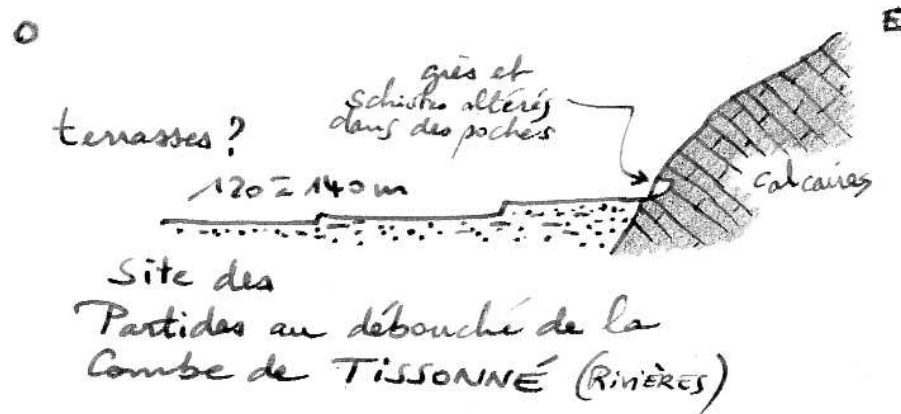 O E
grès et
schistes altérés
dans des poches
terrasses ?
120 = 140 m
calcaires
Site des
Partides au débouché de la
Combe de TISSONNÉ (RIVIÈRES)